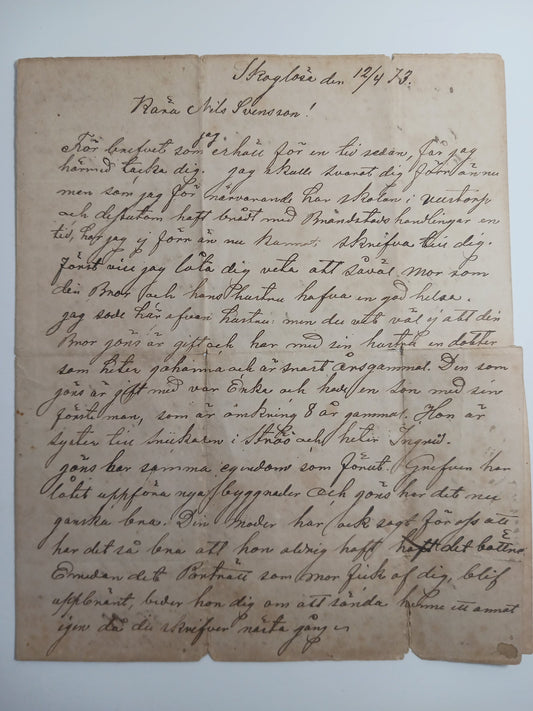 Skoglösa den 12/4 73.
Kära Nils Svensson!
För brefvet som jag erhöll för en tid sedan, får jag
härmed tacka dig. jag skulle svarat dig förr än nu
men som jag för närvarande har skolan i Vustorp
och dessutom haft brådt med Brandstods handlingar en
tid, har jag ej förr än nu kunnat skrifva till dig.
Först vill jag låta dig veta att såväl mor som
din Bror och hans hustru hafva en god helsa.
jag sade här ofvan hustru: men du vet väl ej att din
Bror jöns är gift och har med sin hustru en dotter
som heter johanna och är snart årsgammal. Den som
jöns är gift med var Enka och hade en son med sin
förste man, som är omkring 8 år gammal. Hon är
syster till snickaren i Strö och heter Ingrid.
jöns har samma egendom som förut. Grefven har
låtit uppföra nya byggnader och jöns har det nu
ganska bra. Din moder har ock sagt för oss att
har det så bra att hon aldrig haft haft det bättre
Emedan det Porträtt som mor fick af dig, blif
uppbränt, beder hon dig om att sända henne ett annat
igen då du skrifver nästa gång